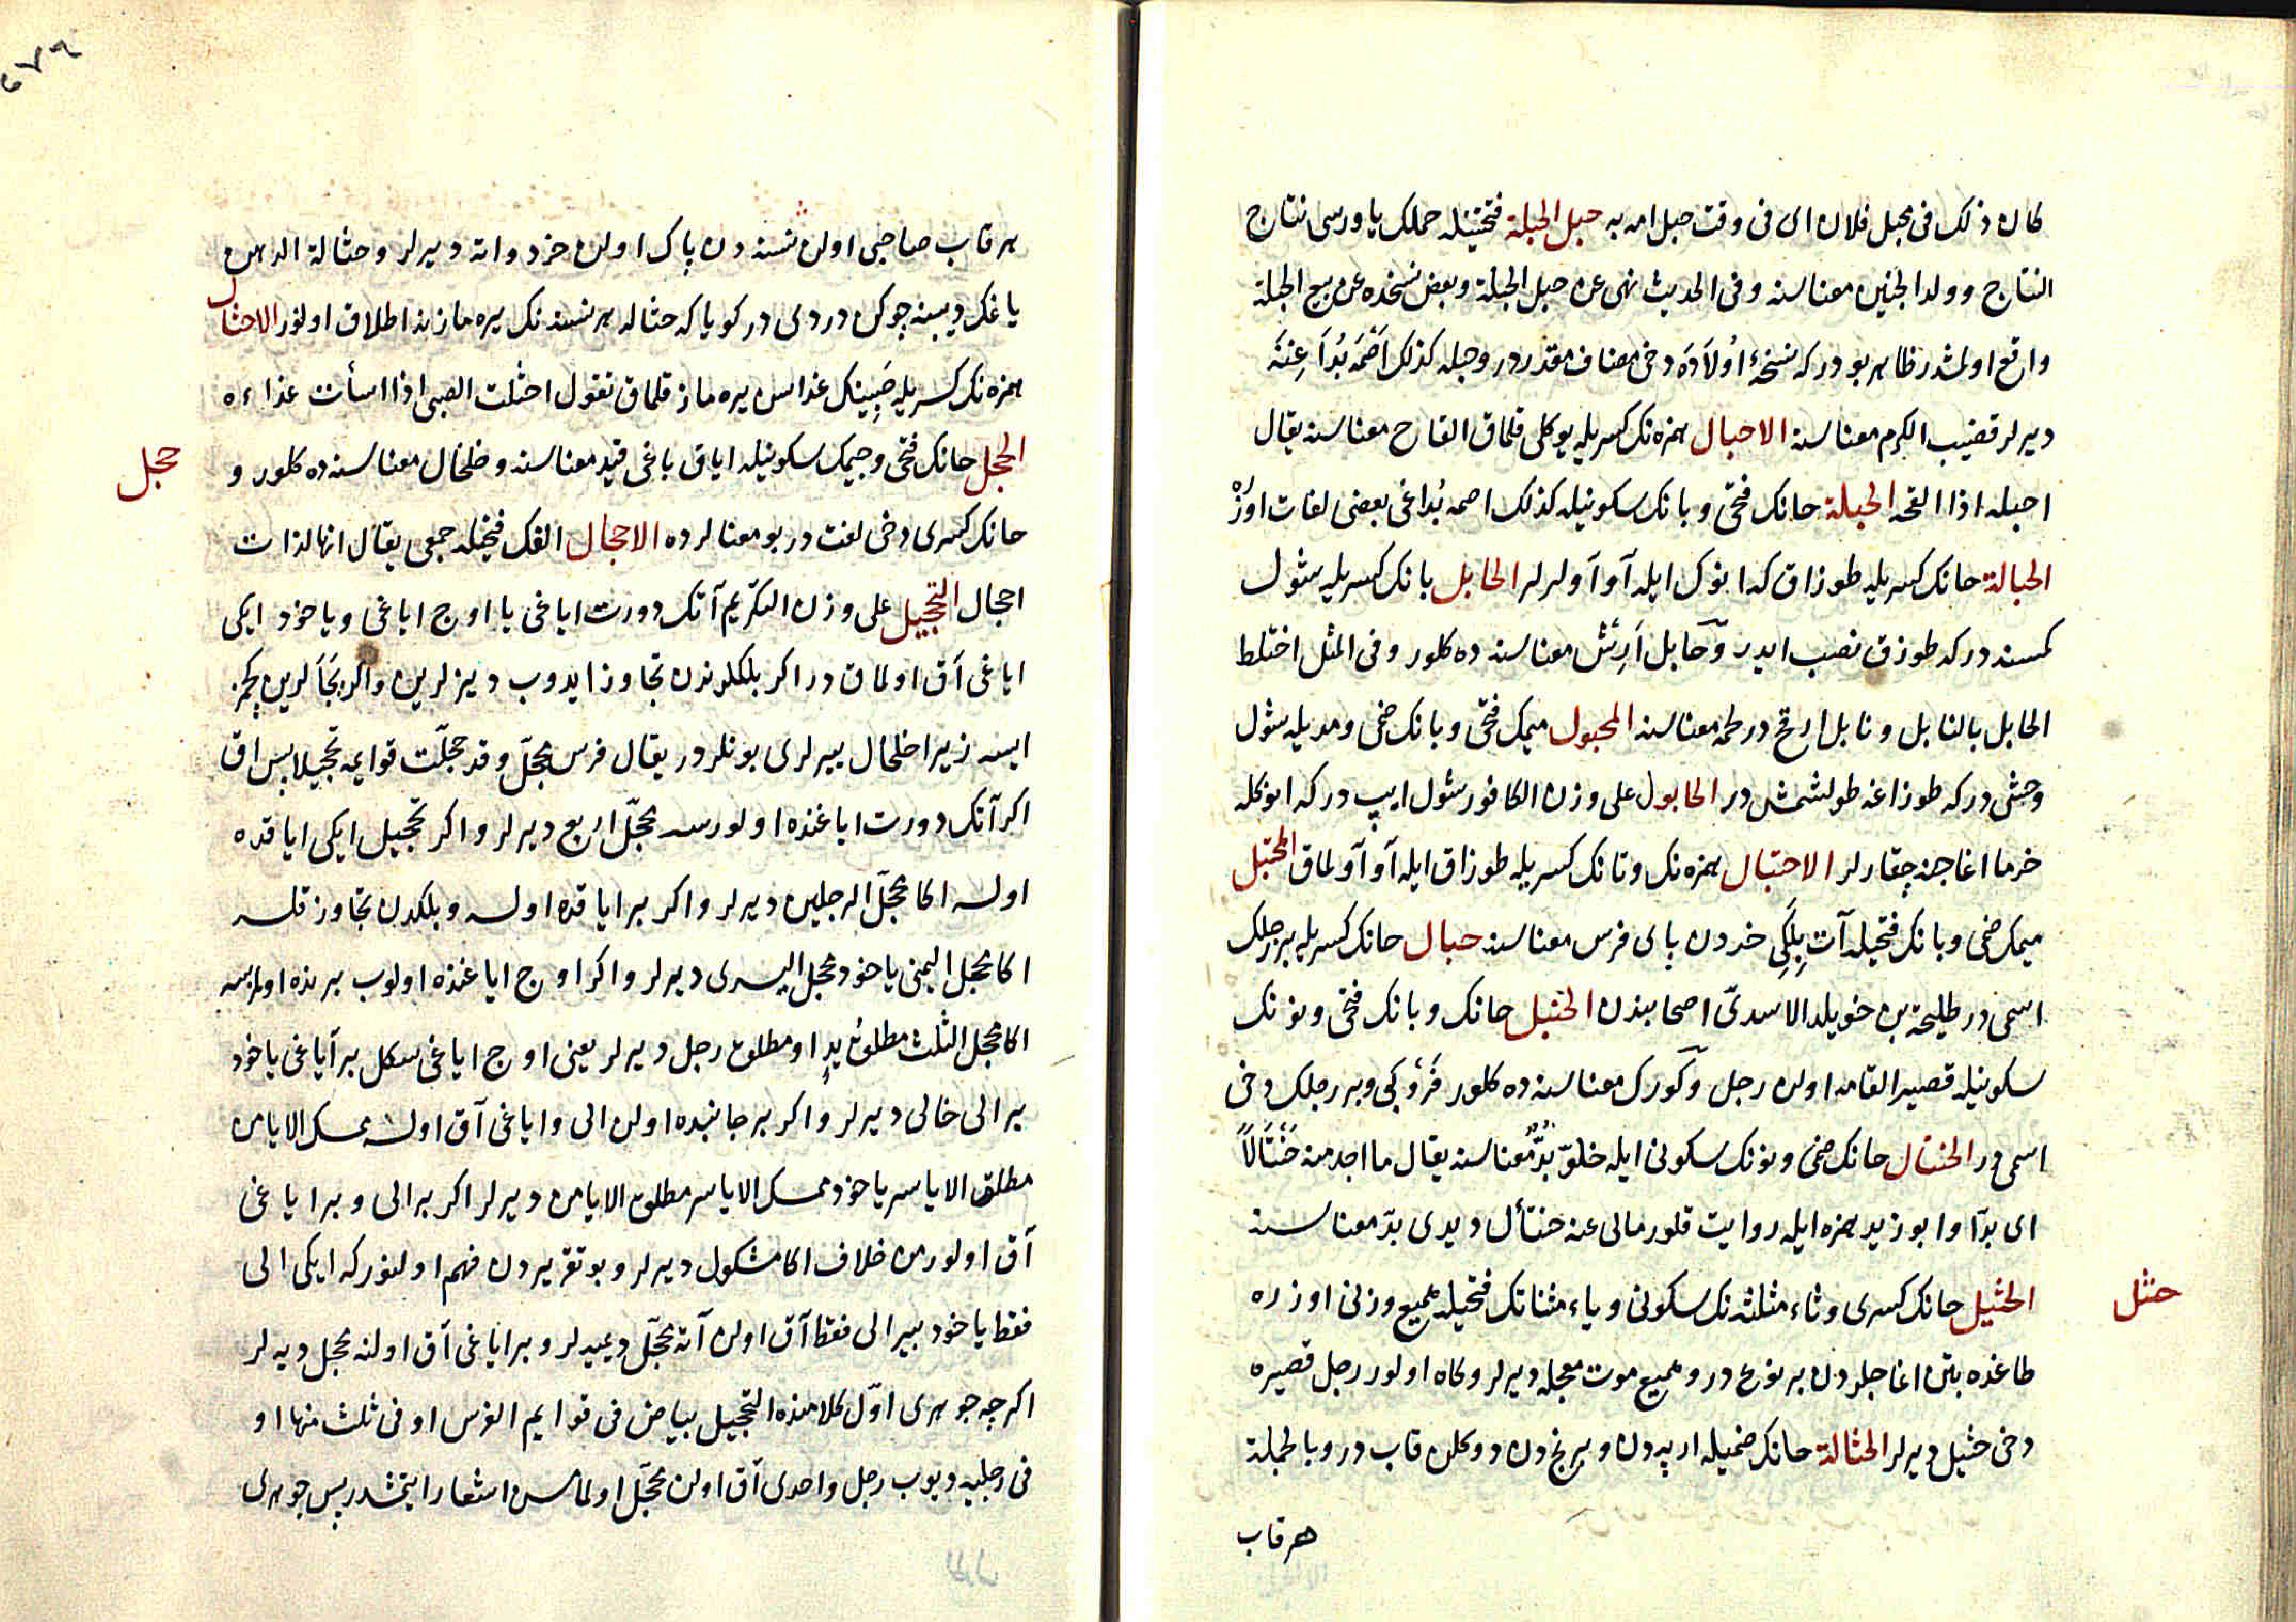 كان ذلك فى محبل فلان اى فى وقت حبل امه به حبل الحبلة فتحتيله حملك ياورسى نتاج
النتاج وولد الجنين معناسنه وفى الحديث نهى عن حبل الحبلة وبعض نسخده عن بيع الحبلة
واقع اولمشدر ظاهر بودركه نسخۀ اولاده دخى مضاف مقدردر وحبله كذلك اصمه بداَ عِنَبَه
ديرلر قضيب الكرم معناسنه الاحبال همزه نك كسريله يوكلى قلماق القاح معناسنه يقال
احبله اذا القحه الحبلة حانك فتحى وبانك سكونيله كذلك اصمه بُداغى بعضى لغات اوزره
الحبالة حانك كسريله طوزاق كه انوك ايله آو آولرلر الحابل بانك كسريله شول
كمسنه دركه طوزق نصب ايدر وحابل اَرِش معناسنه ده كلور وفى المثل اختلط
الحابل بالنابل ونابل ارقج در لحمه معناسنه المحبول ميمك فتحى وبانك ضمى ومديله شول
وحشى دركه طوزاغه طولشمش در الحابول على وزن الكافور شول ايپ دركه انوكله
خرما اغاجنه چقارلر الاحتبال همزه نك وتانك كسريله طوزاق ايله آو آولماق المحتبل
ميمك ضمى وبانك فتحيله آت بِلَكِى خردن پاى فرس معناسنه حبال حانك كسريله بر رجلك
اسمى در طليحة بن خويلد الاسدىّ اصحابندن الحنبل حانك وبانك فتحى ونونك
سكونيله قصير القامه اولن رجل وكورك معناسنه ده كلور فَرْو كبى وبر رجلك دخى
اسمى در الحنتال حانك ضمى ونونك سكونى ايله خلوّ بُدّ معناسنه يقال ما اجد منه حُنْتَالاً
اى بدّا وابو زيد همزه ايله روايت قلور مالى عنه حنتأل ديدى بدّ معناسنه
حثل
الحثيل حانك كسرى وثاء مثلثه نك سكونى وياء مثناتك فتحيله هميع وزنى اوزره
طاغده بتن اغاجلردن بر نوع در وهميع موت معجله ديرلر وكاه اولور رجل قصيره
دخى حثيل ديرلر الحثالة حانك ضميله ارپه دن وبرنجدن دوكلن قاب در وبالجملة
هر قاب
٦٧٩
هر قاب صاحبى اولن نسنه دن پاك اولن خرد واته ديرلر وحثالة الدهن
ياغك ديبنه چوكن دردى در كويا كه حثاله هر نسنه نك يره مازينه اطلاق اولنور الاحثال
همزه نك كسريله صَبِينك غداسن يره ماز قلماق تقول احثلت الصبى اذا اسأت غذاءه
حجل
الحجل حانك فتحى وجيمك سكونيله اياق باغى قيد معناسنه وخلخال معناسنه ده كلور و
حانك كسرى دخى لغت در بو معنالرده الاحجال الفك فتحيله جمعى يقال انها لذات
احجال التحجيل على وزن التكريم آتك دورت اياغى يا اوچ اياغى وياخود ايكى
اياغى آق اولماق در اكر بلكلرندن تجاوز ايدوب ديزلرين واكر بچاقلرين كچمز
ايسه زيرا خلخال ييرلرى بونلردر يقال فرس محجّل وقد حجّلت قوايمه تحجيلا پس اق
اكر آتك دورت اياغنده اولورسه محجّل اربع ديرلر واكر تحجيل ايكى اياقده
اولسه اكا محجّل الرجلين ديرلر واكر بر اياقده اولسه وبلكدن تجاوز قلسه
اكا محجل اليمنى ياخود محجل اليسرى ديرلر واكر اوچ اياغنده اولوب برنده اولمزسه
اكا محجل الثلث مطلق يدٍ او مطلق رجل ديرلر يعنى اوچ اياغى سكل بر اياغى ياخود
بر الى خالى ديرلر واكر بر جانبده اولن الى واياغى آق اولسه ممسك الايامن
مطلق الاياسر ياخود ممسك الاياسر مطلق الايامن ديرلر اكر بر الى وبر اياغى
آق اولور من خلاف اكا مشكول ديرلر وبو تقريردن فهم اولنور كه ايكى الى
فقط ياخود بير الى فقط آق اولن آته محجّل ديميدلر وبر اياغى آق اولنه محجل ديه لر
اكرچه جوهرى اوّل كلامنده التحجيل بياض فى قوايم الفرس او فى ثلث منها او
فى رجليه ديوب رجل واحدى آق اولن محجّل اولماسن اشعار ايتمشدر پس جوهرى